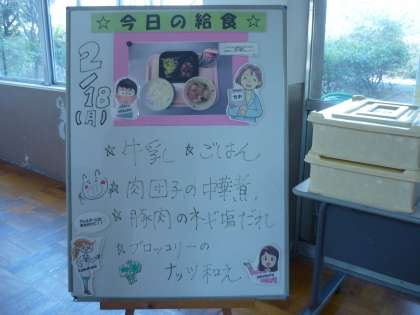 ☆ 今日の給食 ☆
2/18(月)
☆ 牛乳 ☆ ごはん
☆ 肉団子の中華煮
☆ 豚肉のネギ塩だれ
☆ ブロッコリーの
ナッツ和え